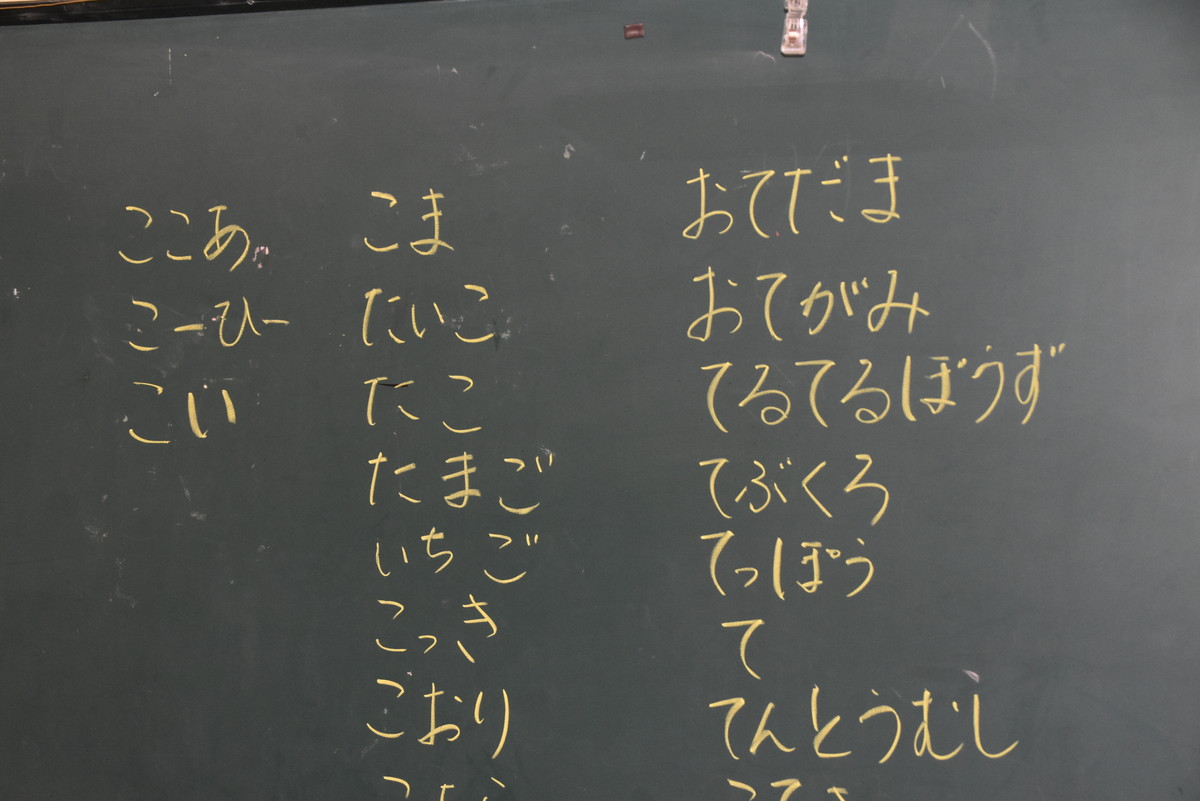 ここあ
こーひー
こい
こま
たいこ
たこ
たまご
いちご
こっき
ごおり
おてだま
おてがみ
てるてるぼうず
てぶくろ
てっぽう
て
てんとうむし